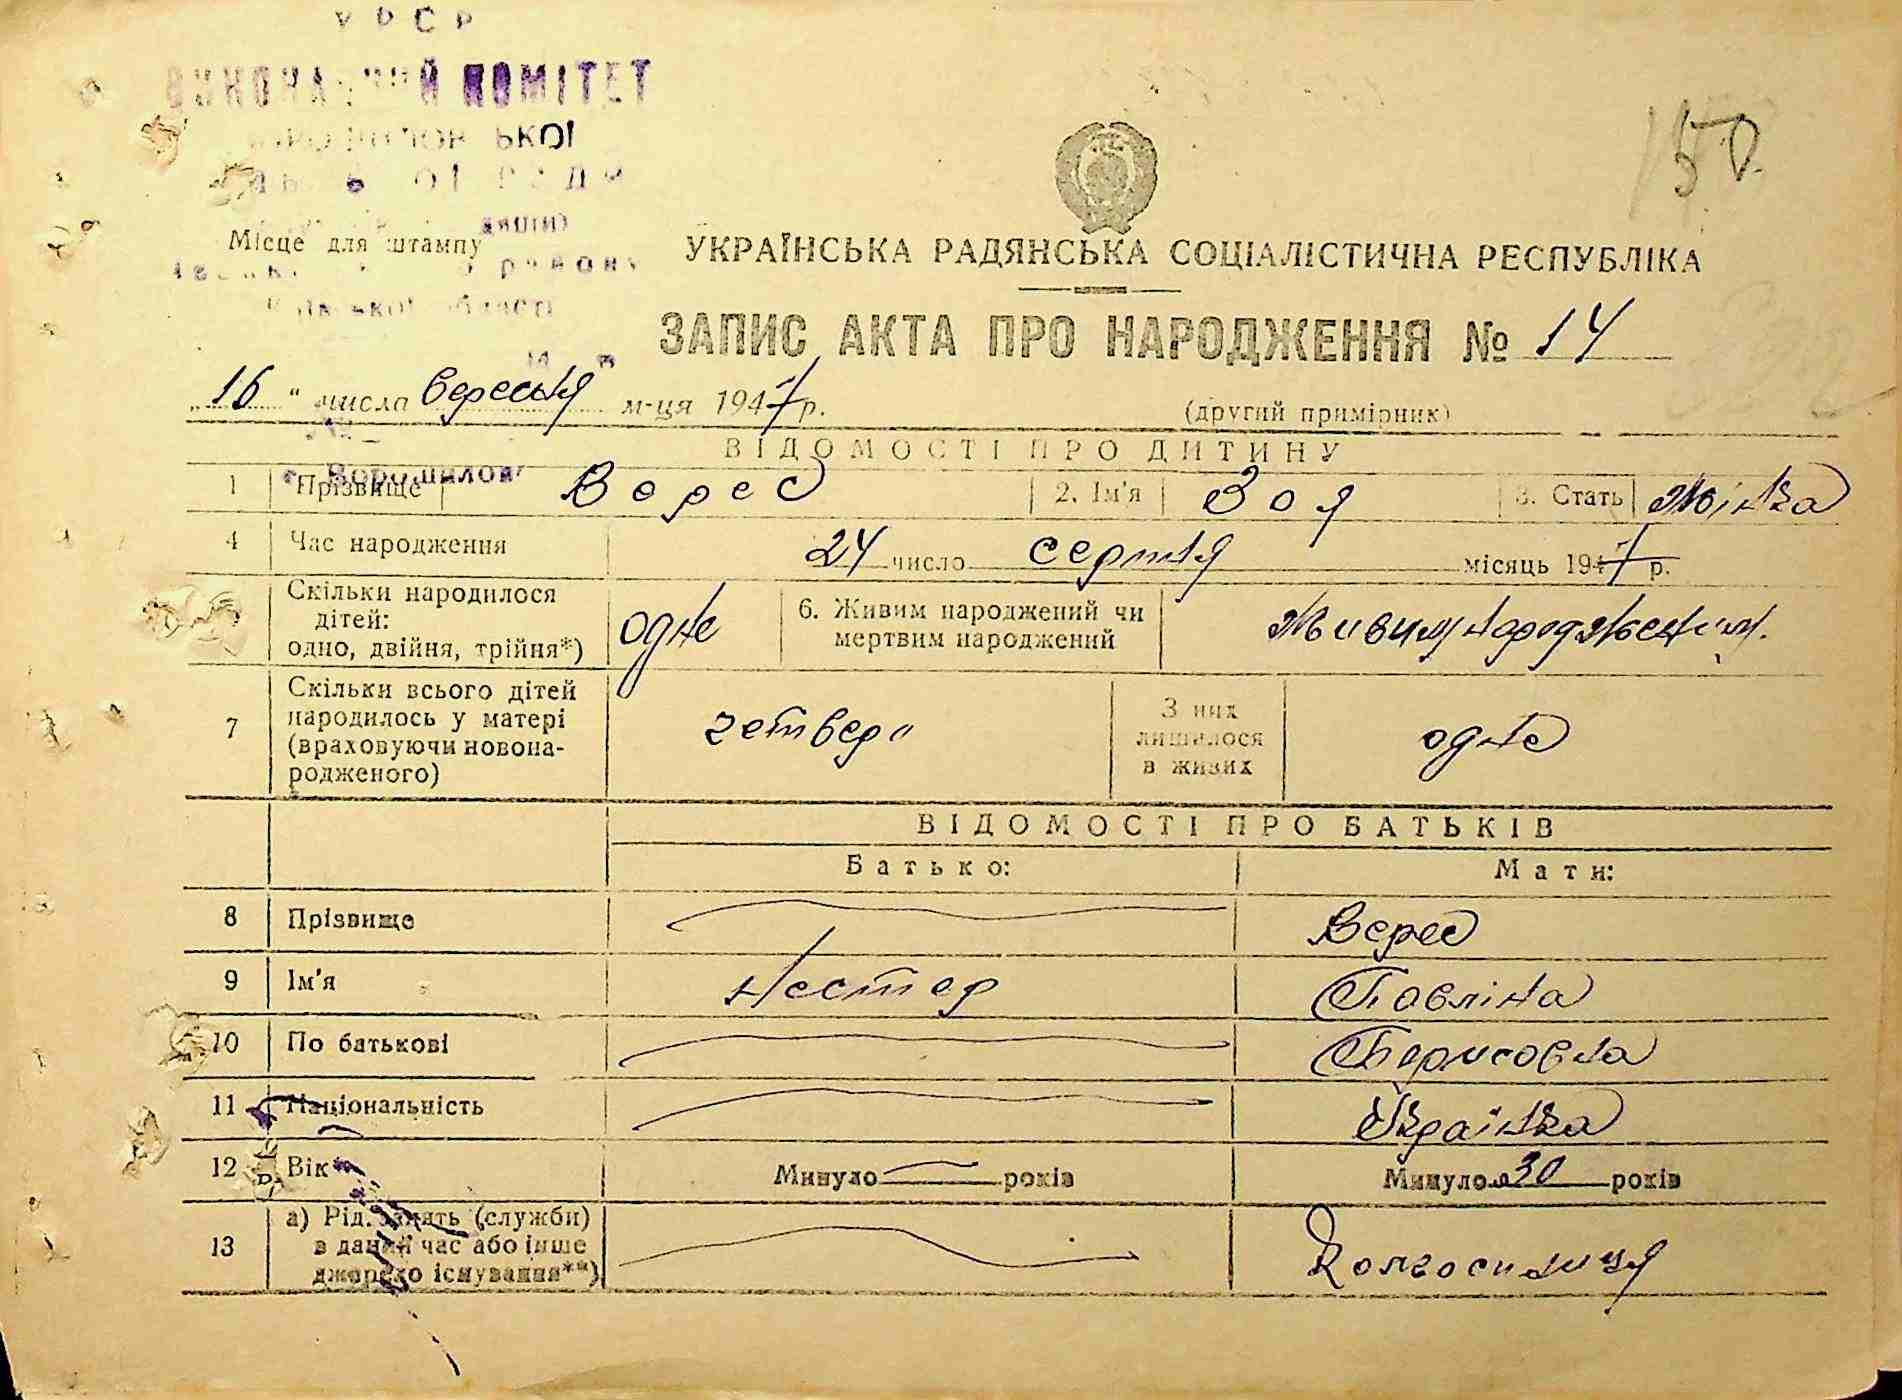 УРСР
ВИКОНАВЧИЙ КОМІТЕТ
РАДИ
району
області
Місце для штампу
150.
УКРАЇНСЬКА РАДЯНСЬКА СОЦІАЛІСТИЧНА РЕСПУБЛІКА
ЗАПИС АКТА ПРО НАРОДЖЕННЯ № 14
„16“ числа вересня м-ця 1947 р.
(другий примірник)
ВІДОМОСТІ ПРО ДИТИНУ
1 Прізвище Верес 2. Ім'я Зоя 3. Стать Жінка
4 Час народження 24 число серпня місяць 1947 р.
Скільки народилося дітей: одно, двійня, трійня*) одне 6. Живим народжений чи мертвим народжений Живим народженим.
7 Скільки всього дітей народилось у матері (враховуючи новонародженого) четверо З них лишилося в живих одне
ВІДОМОСТІ ПРО БАТЬКІВ
Батько: Мати:
8 Прізвище Верес
9 Ім'я Нестер Павліна
10 По батькові Борисовна
11 Національність Українка
12 Вік Минуло років Минуло 30 років
13 а) Рід занять (служби) в даний час або інше джерело існування**) Колгоспниця